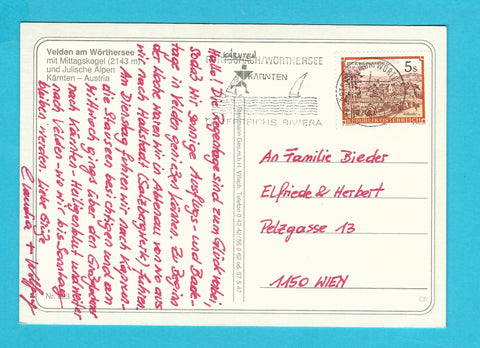 Velden am Wörthersee
mit Mittagskogel (2143 m)
und Julische Alpen
Kärnten – Austria
KÄRNTEN
/WÖRTHERSEE
KÄRNTEN
ÖSTERREICHS RIVIERA
5 S
REPUBLIK ÖSTERREICH
Hallo! Die Regentage sind zum Glück vorbei,
sodaß wir sonnige Ausflugs- und Bade-
tage in Velden genießen können. Zu Beginn
der Woche waren wir in Abtenau von wo aus
wir nach Hallstadt (Salzbergwerk) fuhren.
Am Dienstag fuhren wir nach Kaprun-
die Stauseen besichtigen und am
Mittwoch gings über den Großglockner
nach Kärnten-Heiligenblut und weiter
nach Velden-wo wir bis Sonntag
bleiben werden. Liebe Grüße
Claudia +
An Familie Bieder
Elfriede & Herbert
Pelzgasse 13
1150 WIEN